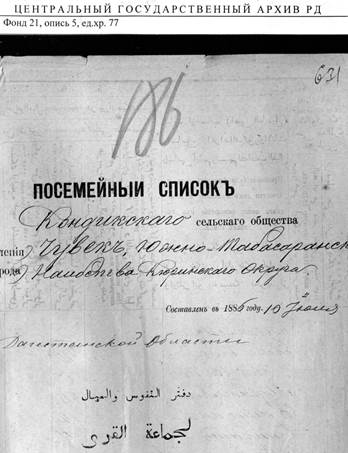 ЦЕНТРАЛЬНЫЙ ГОСУДАРСТВЕННЫЙ АРХИВ РД
Фонд 21, опись 5, ед.хр. 77
631
186
ПОСЕМЕЙНЫЙ СПИСОКЪ
Кондикскаго сельскаго общества
ленія) Чувекъ, Южно-Табасаранск
рода) Наибства Кюринскаго Округа.
Составленъ въ 1886 году. 10 Іюля
Дагестанской Области
دفتر النفوس والعيال
لجماعة القرى